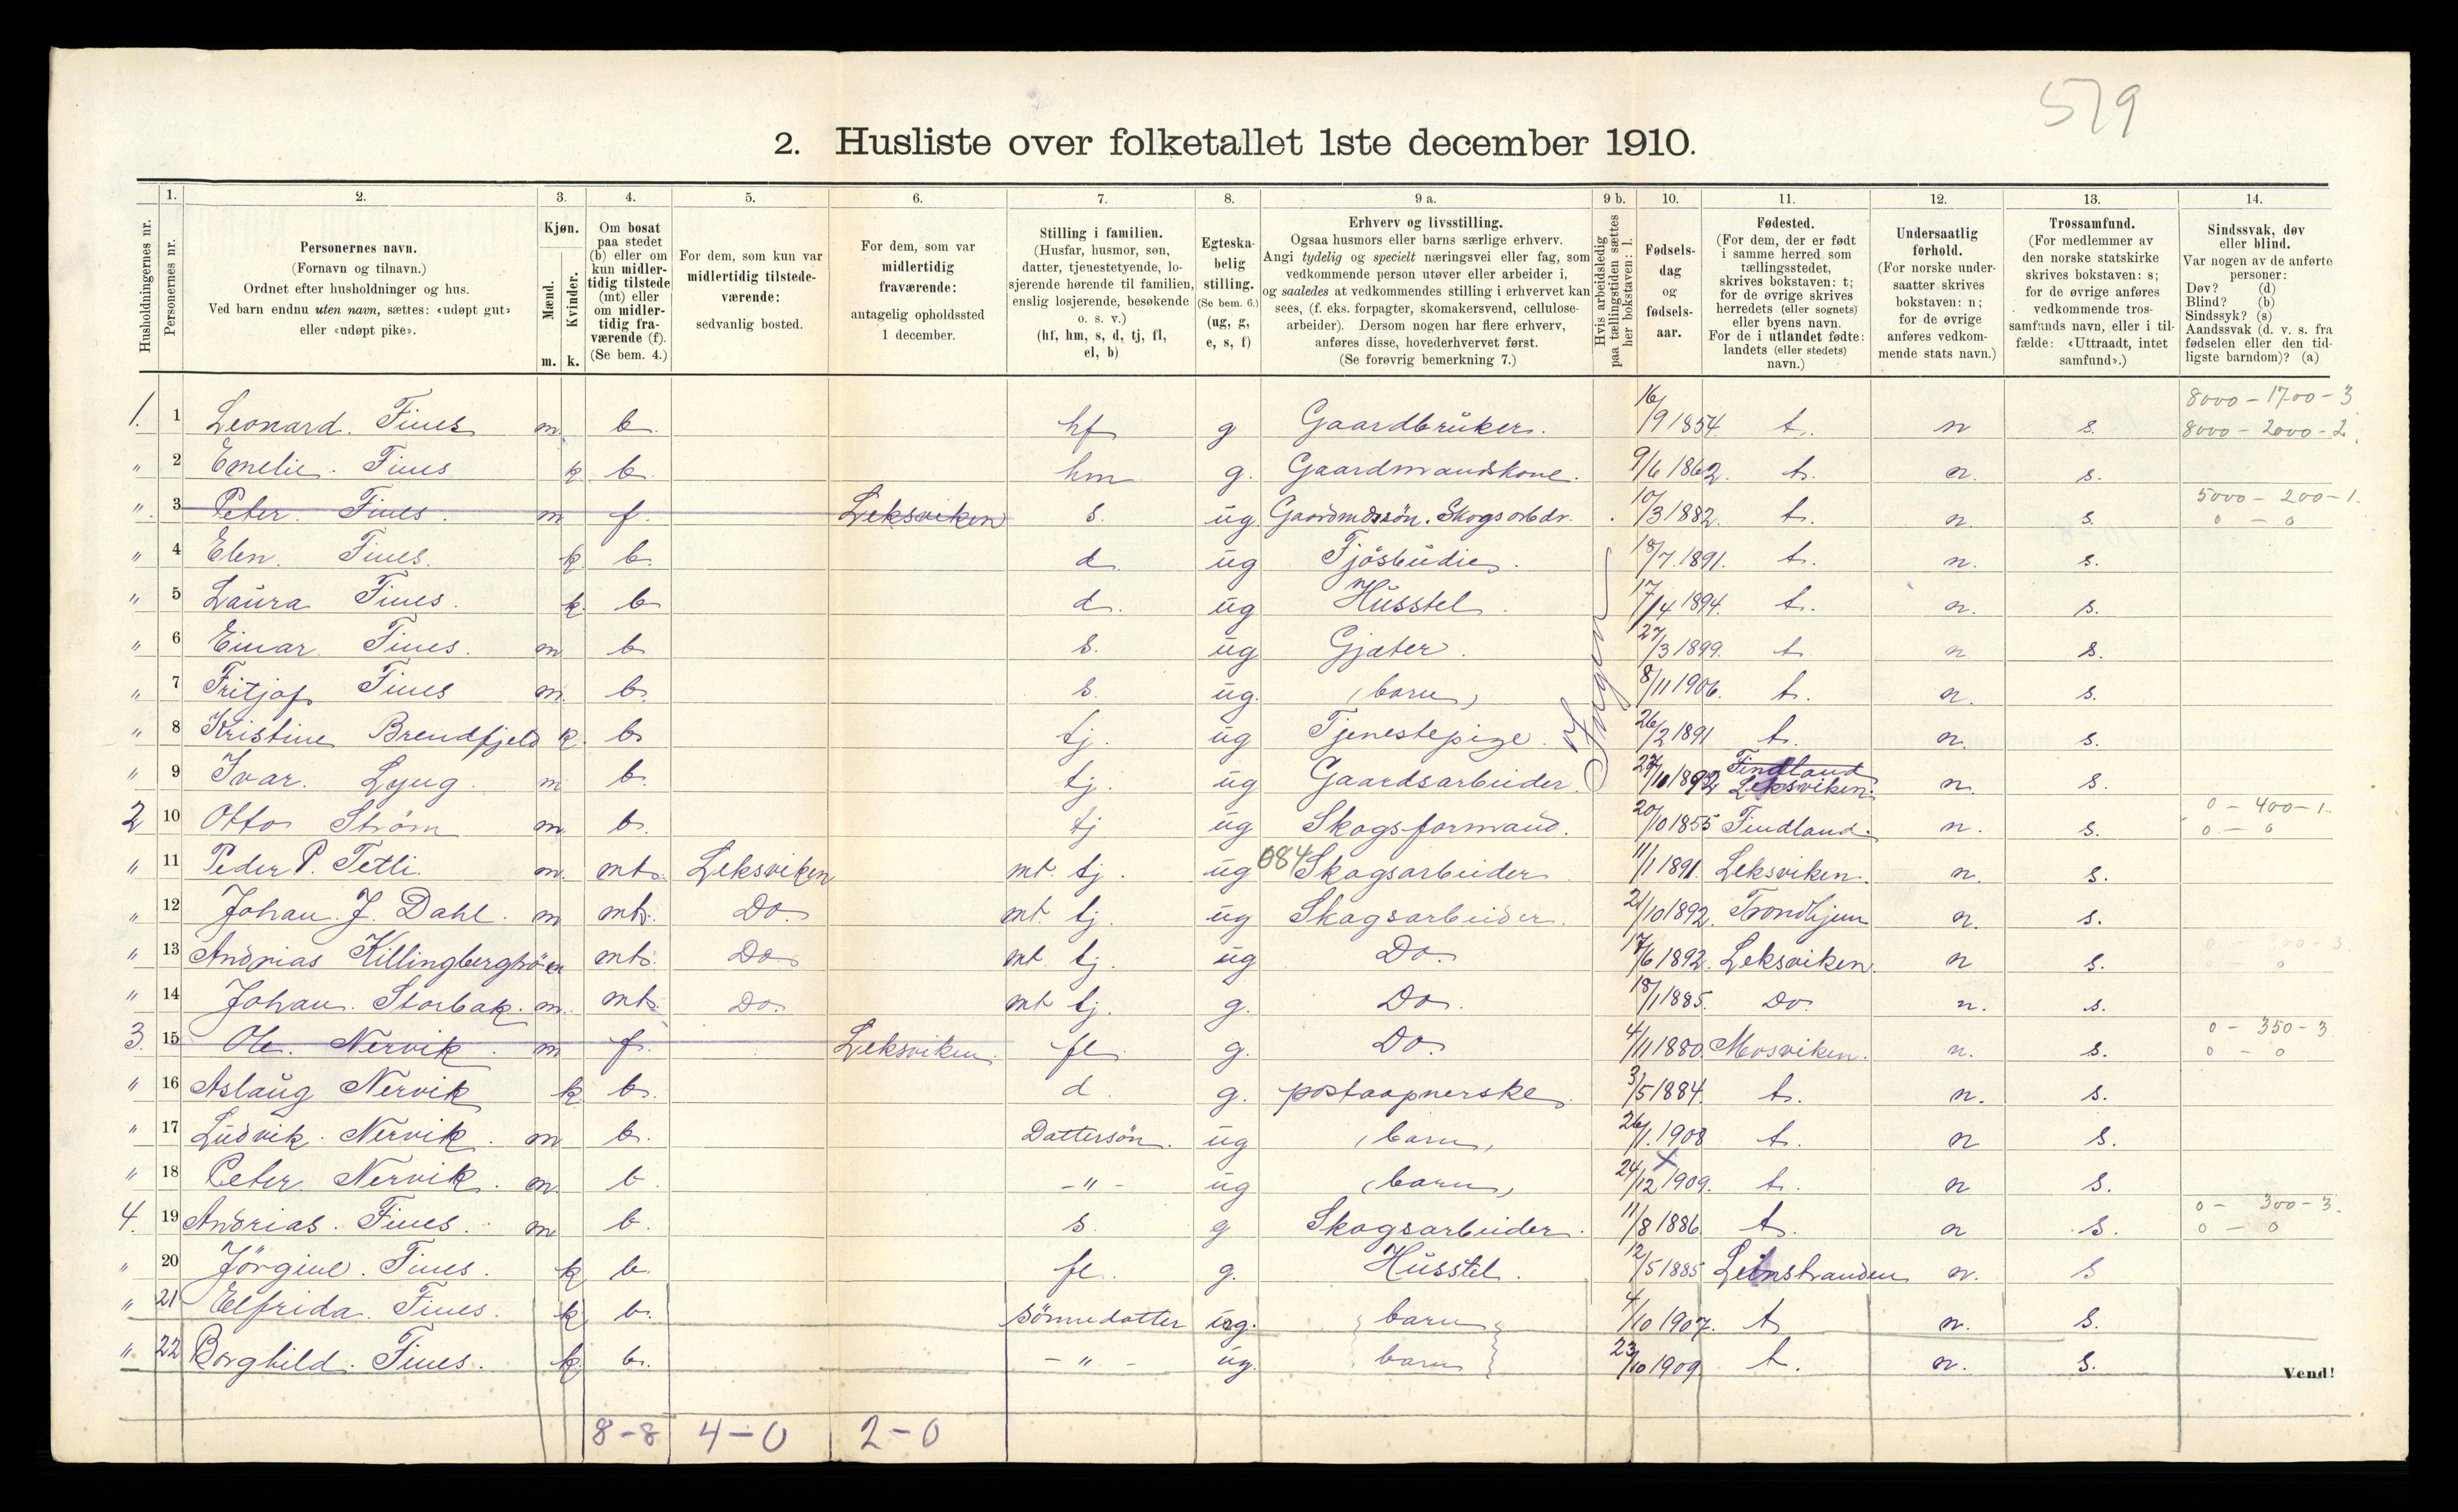 579
2. Husliste over folketallet 1ste december 1910.
Husholdningernes nr.
1. Personernes nr.
2. Personernes navn. (Fornavn og tilnavn.) Ordnet efter husholdninger og hus. Ved barn endnu uten navn, sættes: «udøpt gut» eller «udøpt pike».
3. Kjøn. Mænd. m. Kvinder. k.
4. Om bosat paa stedet (b) eller om kun midlertidig tilstede (mt) eller om midlertidig fraværende (f). (Se bem. 4.)
5. For dem, som kun var midlertidig tilstedeværende: sedvanlig bosted.
6. For dem, som var midlertidig fraværende: antagelig opholdssted 1 december.
7. Stilling i familien. (Husfar, husmor, søn, datter, tjenestetyende, losjerende hørende til familien, enslig losjerende, besøkende o. s. v.) (hf, hm, s, d, tj, fl, el, b)
8. Egteskabelig stilling. (Se bem. 6.) (ug, g, e, s, f)
9 a. Erhverv og livsstilling. Ogsaa husmors eller barns særlige erhverv. Angi tydelig og specielt næringsvei eller fag, som vedkommende person utøver eller arbeider i, og saaledes at vedkommendes stilling i erhvervet kan sees, (f. eks. forpagter, skomakersvend, cellulosearbeider). Dersom nogen har flere erhverv, anføres disse, hovederhvervet først. (Se forøvrig bemerkning 7.)
9 b. Hvis arbeidsledig paa tællingstiden sættes her bokstaven: l.
10. Fødselsdag og fødselsaar.
11. Fødested. (For dem, der er født i samme herred som tællingsstedet, skrives bokstaven: t; for de øvrige skrives herredets (eller sognets) eller byens navn. For de i utlandet fødte: landets (eller stedets) navn.)
12. Undersaatlig forhold. (For norske undersaatter skrives bokstaven: n; for de øvrige anføres vedkommende stats navn.)
13. Trossamfund. (For medlemmer av den norske statskirke skrives bokstaven: s; for de øvrige anføres vedkommende trossamfunds navn, eller i tilfælde: «Uttraadt, intet samfund».)
14. Sindssvak, døv eller blind. Var nogen av de anførte personer: Døv? (d) Blind? (b) Sindssyk? (s) Aandssvak (d. v. s. fra fødselen eller den tidligste barndom)? (a)
8000 - 1700 - 3
1. 1 Leonard. Fines m b. hf g Gaardbruker. 16/9 1854. t. n s. 8000 - 2000 - 2.
" 2 Emelie. Fines k b. hm g. Gaardmandskone. 9/6 1862. t. n. s.
5000 - 200 - 1.
" 3 Peter. Fines. m f. Leksviken s. ug Gaardmdssön. Skogsarbdr. 10/3 1882. t. n. s. 0 - 0
" 4 Elen. Fines. k b. d. ug Fjösbudie. 18/7 1891. t. n. s.
" 5 Laura Fines. k. b d. ug Husstel. 17/4 1894. t. n. s.
" 6 Einar. Fines. m b s. ug Gjæter. 27/3 1899. t n s.
" 7 Fritjof Fines m. b. s. ug. (barn) 8/11 1906. t. n. s.
" 8 Kristine Brendfjeld k. b. tj. ug Tjenestepige. 26/2 1891 t. n. s.
" 9 Ivar. Lyng. m b. tj. ug Gaardsarbeider. 27/10 1892 Findland Leksviken. n. s.
0 - 400 - 1.
2 10 Otto Ström m. b. tj ug Skogsformand. 20/10 1855 Findland. n. s. 0 - 0
" 11 Peder P. Tetli. m. mt. Leksviken mt. tj. ug 084 Skogsarbeider 11/1 1891. Leksviken. n. s.
" 12 Johan. J. Dahl. m mt. Do. mt. tj. ug Skogsarbeider. 21/10 1892. Trondhjem n. s.
" 13 Andrias Killingbergtrö m mt. Do mt. tj. ug Do. 17/6 1892. Leksviken. n s.
" 14 Johan. Storbak. m. mt. Do. mt tj. g. Do. 18/1 1885. Do. n. s.
0 - 350 - 3
3. 15 Ole. Nervik. m f. Leksviken. fl. g. Do. 4/11 1880. Mosviken. n. s. 0 - 0
" 16 Aslaug Nervik k b. d g. postaapnerske. 3/5 1884. t. n. s.
" 17 Ludvik. Nervik. m b. Dattersön. ug (barn) 26/1. 1908 t. n s.
" 18 Peter Nervik. m. b. -"- ug (barn) 24/12 1909. t. n s.
0 - 300 - 3.
4. 19 Andrias. Fines. m b. s. g Skogsarbeider. 11/8 1886. t. n s. 0 - 0
" 20 Jörgine. Fines. k b. fl. g. Husstel. 12/5 1885 Leinstranden n. s
" 21 Elfrida. Fines. k b. sönnedatter ug. {barn} 4/10 1907. t n. s.
" 22 Borghild. Fines. k b. -"- ug. {barn} 23/10 1909. t. n. s.
Vend!
8-8 4-0 2-0